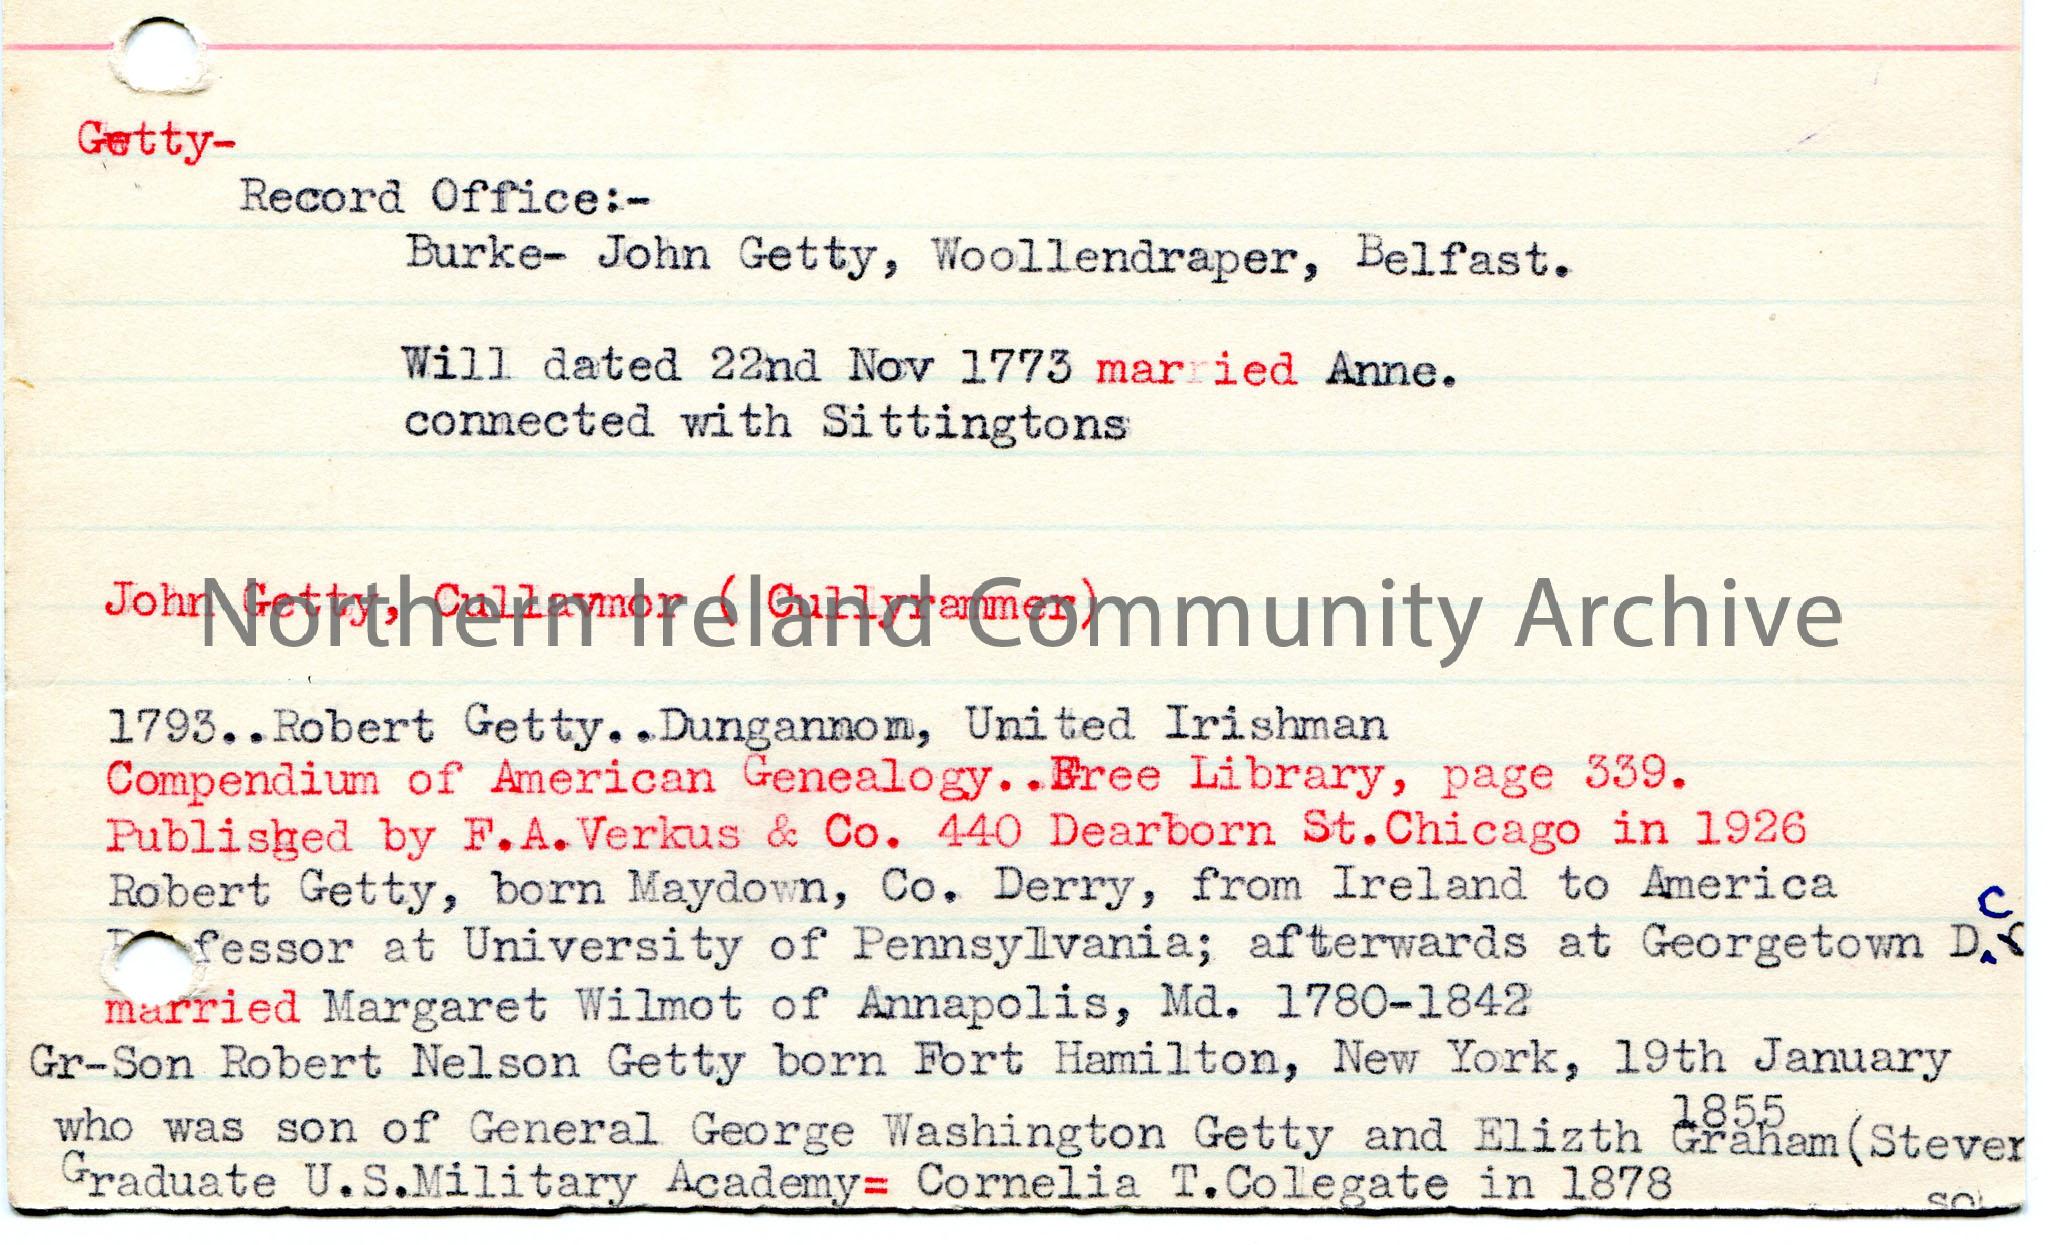 Getty-
Record Office:-
Burke- John Getty, Woollendraper, Belfast.
Will dated 22nd Nov 1773 married Anne.
connected with Sittingtons
John Getty, Cullavmor ( Gullyrammer)
Northern Ireland Community Archive
1793..Robert Getty..Dungannon, United Irishman
Compendium of American Genealogy..Free Library, page 339.
Published by F.A.Verkus & Co. 440 Dearborn St.Chicago in 1926
Robert Getty, born Maydown, Co. Derry, from Ireland to America
fessor at University of Pennsylvania; afterwards at Georgetown D.C
married Margaret Wilmot of Annapolis, Md. 1780-1842
Gr-Son Robert Nelson Getty born Fort Hamilton, New York, 19th January
1855
who was son of General George Washington Getty and Elizth Graham(Steven
Graduate U.S.Military Academy= Cornelia T.Colegate in 1878
so